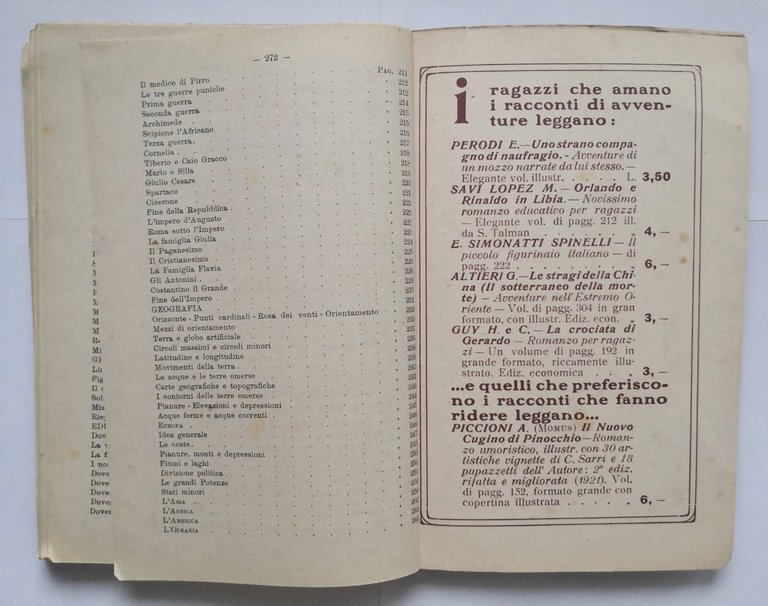 — 272 —
PAG. 211
Il medico di Pirro 212
Le tre guerre puniche 212
Prima guerra 214
Seconda guerra 215
Archimede 215
Scipione l'Africano 216
Terza guerra 217
Cornelia
Tiberio e Caio Gracco
Mario e Silla
Giulio Cesare
Spartaco
Cicerone
Fine della Repubblica
L'impero d'Augusto
Roma sotto l'Impero
La famiglia Giulia
Il Paganesimo
Il Cristianesimo
La Famiglia Flavia
Gli Antonini
Costantino il Grande
Fine dell'Impero
GEOGRAFIA
Orizzonte - Punti cardinali - Rosa dei venti - Orientamento
Mezzi di orientamento
Terra e globo artificiale
Circoli massimi e circoli minori
Latitudine e longitudine
Movimenti della terra
Le acque e le terre emerse
Carte geografiche e topografiche
I contorni delle terre emerse
Pianure - Elevazioni e depressioni
Acque ferme e acque correnti
EUROPA
Idea generale
Le coste
Pianure, monti e depressioni
Fiumi e laghi
Divisione politica
Le grandi Potenze
Stati minori
L'ASIA
L'AFRICA
L'AMERICA
L'OCEANIA
i ragazzi che amano
i racconti di avven-
ture leggano:
PERODI E.—Uno strano compa-
gno di naufragio. - Avventure di
un mozzo narrate da lui stesso. —
Elegante vol. illustr. . . . . L. 3,50
SAVI LOPEZ M. — Orlando e
Rinaldo in Libia. — Novissimo
romanzo educativo per ragazzi
— Elegante vol. di pagg. 212 ill.
da S. Talman . . . . . . „ 4,—
E. SIMONATTI SPINELLI — Il
piccolo figurinaio italiano — di
pagg. 222 . . . . . . . „ 6,—
ALTIERI G.—Le stragi della Chi-
na (Il sotterraneo della mor-
te) — Avventure nell'Estremo O-
riente — Vol. di pagg. 304 in gran
formato, con illustr. Ediz. econ. „ 3,—
GUY H. e C. — La crociata di
Gerardo — Romanzo per ragaz-
zi — Un volume di pagg. 192 in
grande formato, riccamente illu-
strato. Ediz. economica . . . „ 3,—
...e quelli che preferisco-
no i racconti che fanno
ridere leggano...
PICCIONI A. (MOMUS) Il Nuovo
Cugino di Pinocchio—Roman-
zo umoristico, illustr. con 30 ar-
tistiche vignette di C. Sarri e 18
pupazzetti dell'Autore: 2ª ediz.
rifatta e migliorata (1921). Vol.
di pagg. 152, formato grande con
copertina illustrata . . . . „ 6,—